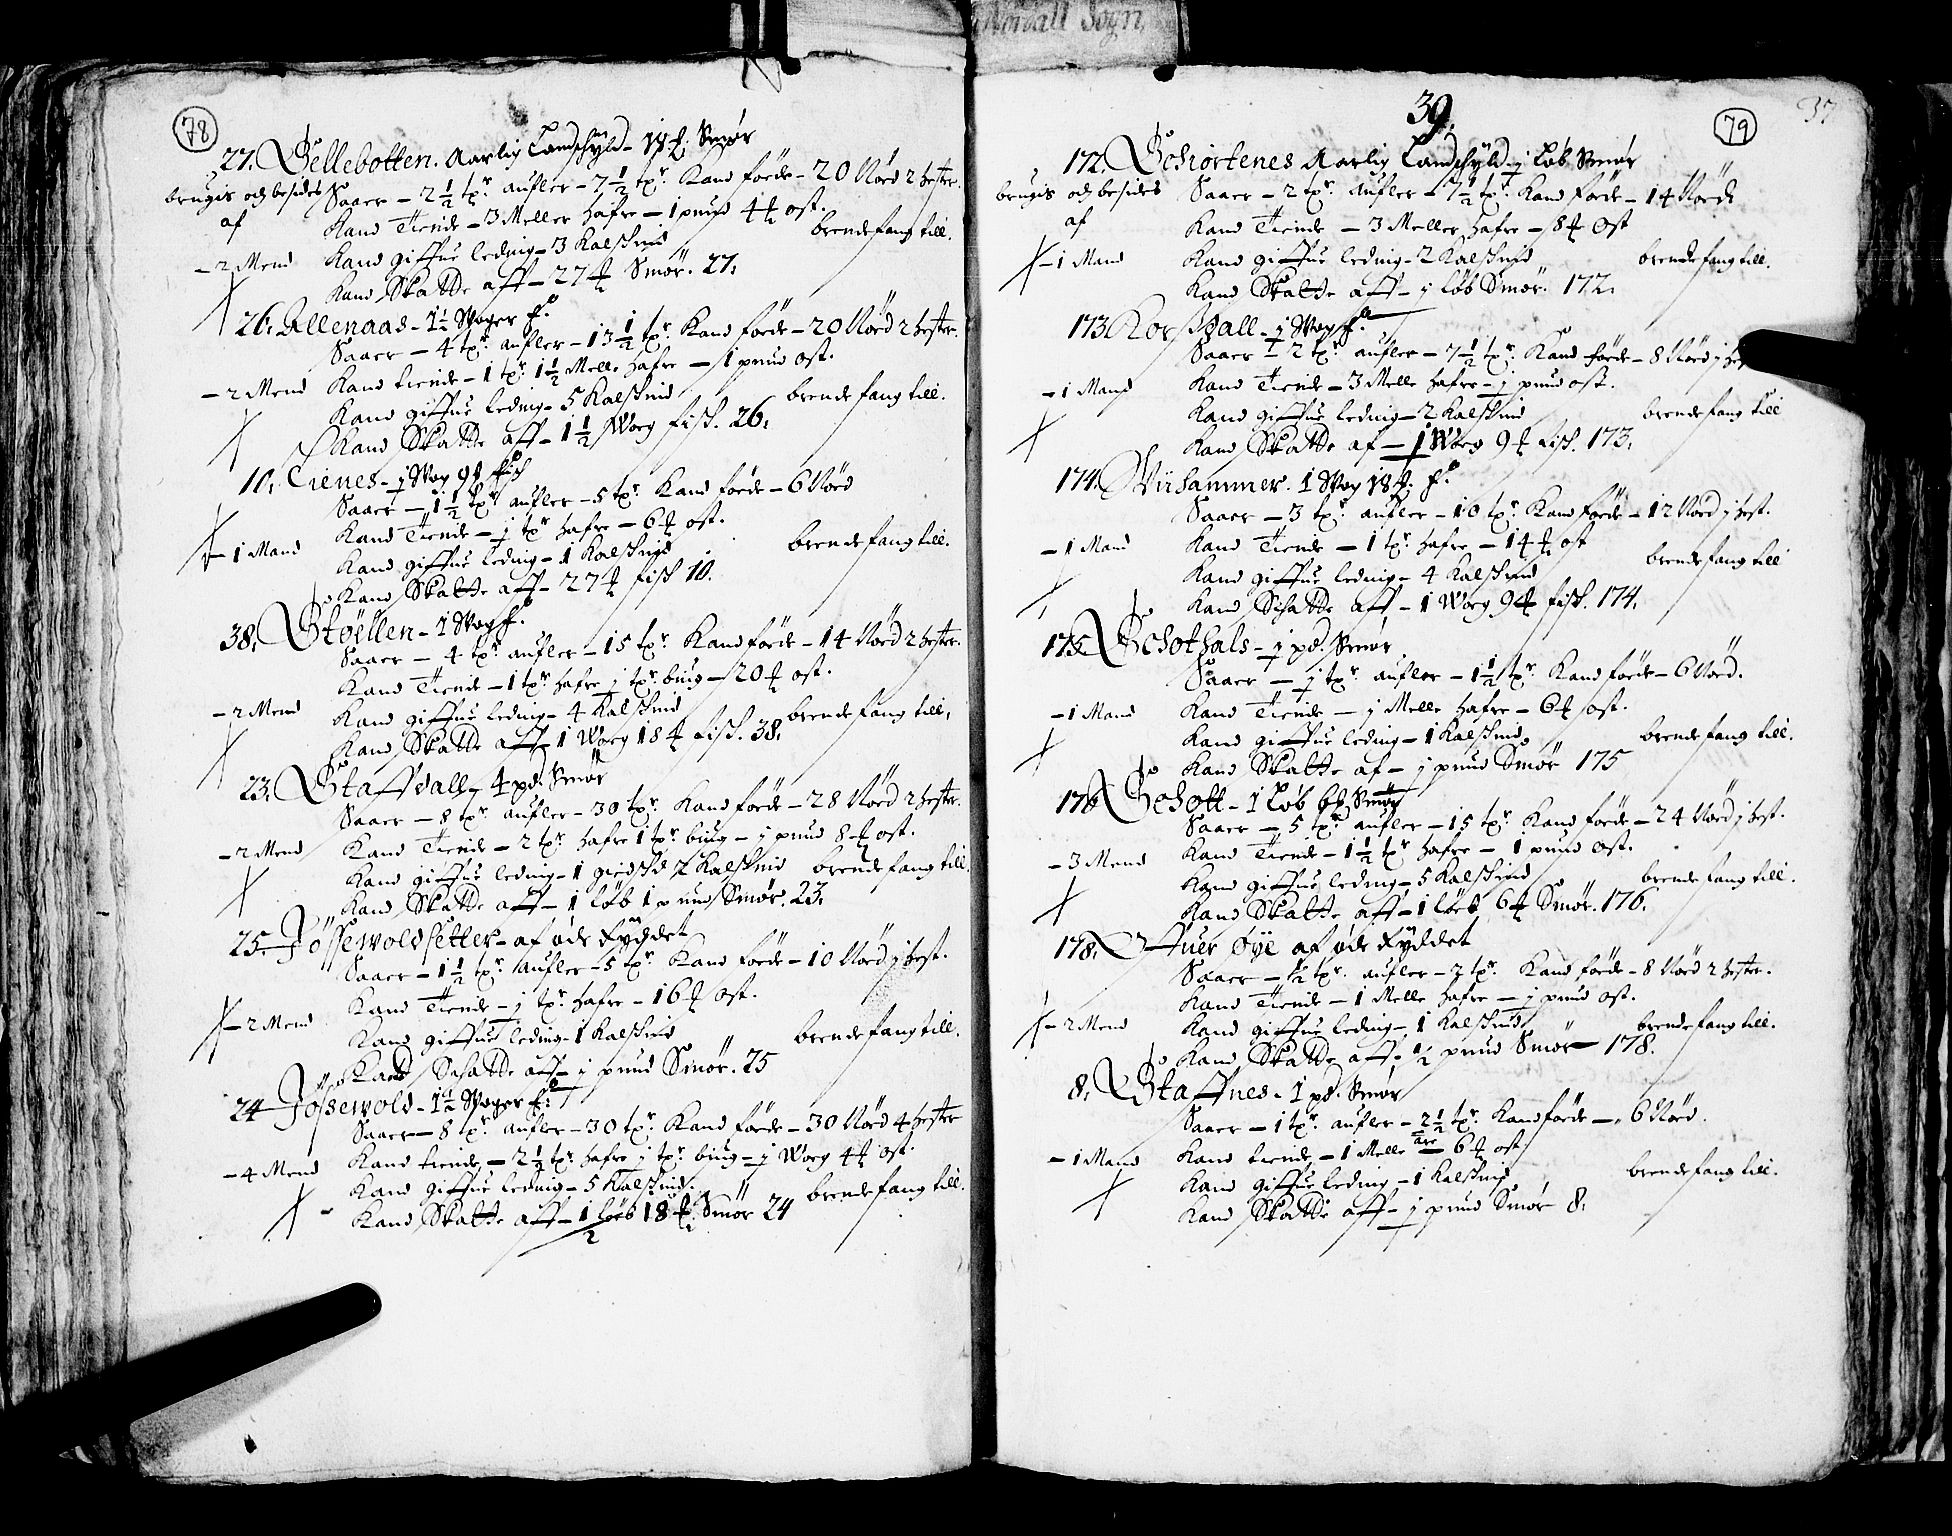 Nordall Sogn,
78
27. Gellebotten. Aarlig Landschÿld - 18 ₰. Smør
brugis och besides af
Saaer - 2 1/2 tr. aufler - 7 1/2 tr. Kand föde - 20 Nörd 2 hester.
Kand Tiende - 3 Meller hafre - 1 pund 4 ₰ ost.
- 2 Mend Kand giffue leding - 3 Kalfskind brendefang till.
Kand Skatte aff - 27 ₰ Smör. 27.
26. Allenaas - 1 1/2 Woger f.
Saaer - 4 tr. aufler - 13 1/2 tr. Kand föde - 20 Nörd 2 hester.
- 2 Mend Kand tiende - 1 tr. 1 1/2 Melle hafre - 1 pund ost.
Kand giffue leding - 5 Kalfskind brendefang till.
Kand Skatte aff - 1 1/2 Woeg fisk. 26.
10. Lienes - j Wog 9 ₰ fisch
Saaer - 1 1/2 tr. aufler - 5 tr. Kand föde - 6 Nörd
Kand Tiende - j tr hafre - 6 ₰ ost.
- 1 Mand Kand giffue leding - 1 Kalfskind brendefang till.
Kand Skatte aff - 27 ₰ fisk 10.
38. Støellen - 1 Wog f.
Saaer - 4 tr. aufler - 15 tr. Kand föde - 14 Nörd 2 hester.
Kand Tiende - 1 tr. hafre j tr. biug - 20 ₰ ost.
- 2 Mend Kand giffue leding - 4 Kalfskind brendefang till.
Kand Skatte aff 1 Woeg 18 ₰ fisk. 38.
23. Staffdall - 4 pd. Smør
Saaer - 8 tr. aufler - 30 tr. Kand föde - 28 Nörd 2 hester.
- 2 Mend Kand Tiende - 2 tr. hafre 1 tr. biug - j pund 8 ₰ ost.
Kand giffue leding - 1 giedsk 2 Kalfskind brendefang till.
Kand Skatte aff - 1 löb 1 pund Smör. 23.
25. Jössewoldsetter - af øde Ryddet
Saaer - 1 1/2 tr. aufler - 5 tr. Kand föde - 10 Nörd j hest.
Kand Tiende - j tr. hafre - 16 ₰ ost.
- 2 Mend Kand giffue leding - 1 Kalfskind brendefang till.
Kand Schatte aff - j pund Smör. 25
24 Jössewold - 1 1/2 Woger f.
Saaer - 8 tr. aufler - 30 tr. Kand föde - 30 Nörd 4 hester
- 4 Mend Kand tiende - 2 1/2 tr. hafre j tr. biug - j Woeg 4 ₰ ost.
Kand giffue leding - 5 Kalfskind. brendefang till.
Kand Skatte aff - 1/2 löeb 18 ₰. Smör 24
39.
79
37
172. Schiortenes Aarlig Landschÿld - j Løb Smør
brugis och besides af
Saaer - 2 tr. aufler - 7 1/2 tr. Kand föde - 14 Nörd
Kand Tiende - 3 Meller hafre - 8 ₰ Ost
- 1 Mand Kand giffue leding - 2 Kalfskind brendefang till.
Kand Skatte aff - j löb Smör. 172.
173. Korsdall - j Wog f.
Saaer - 2 tr. aufler - 7 1/2 tr. Kand föde - 8 Nörd j
- 1 Mand Kand Tiende - 3 Melle hafre - j pund ost.
Kand giffue leding - 2 Kalfskind brendefang till
Kand Skatte af - j Woeg 9 ₰ fisk. 173.
174. Wiihammer. 1 Wog 18 ₰. f.
Saaer - 3 tr. aufler - 10 tr. Kand föde - 12 Nörd j hest.
- 1 Mand Kand Tiende - 1 tr. hafre - 14 ₰ ost
Kand giffue leding - 4 Kalfskind brendefang till
Kand Schatte aff - 1 Woeg 9 ₰ fisk. 174.
175. Schothals - j pd. Smør
Saaer - j tr. aufler - 1 1/2 tr. Kand föde - 6 Nörd.
- 1 Mand Kand Tiende - j Melle hafre - 6 ₰ ost.
Kand giffue leding - 1 Kalfskind brendefang till.
Kand Skatte af - j pund Smör 175
176. Schott - 1 Løb 6 ₰ Smør
Saaer - 5 tr. aufler - 15 tr. Kand föde - 24 Nörd j hest.
- 3 Mend Kand Tiende - 1 1/2 tr hafre - 1 pund Ost.
Kand giffue leding - 5 Kalfskind brendefang till.
Kand Skatte aff - 1 löeb 6 ₰ Smör. 176.
178. Offuer Øÿe af øde Ryddet
Saaer - 1/2 tr. aufler - 2 tr. Kand föde - 8 Nörd 2 hester.
Kand Tiende - 1 Melle hafre - j pund ost.
- 2 Mend Kand giffue leding - 1 Kalfskind brendefang till.
Kand Skatte aff. 1/2 pund Smör - 178.
8. Staffnes - 1 pd. Smør
Saaer - 1 tr. aufler - 2 1/2 tr. Kand föde - 6 Nörd.
- 1 Mand Kand tiende - 1 Melle - 6 ₰ ost
Kand giffue leding - 1 Kalfskind brendefang till.
Kand Skatte aff - j pund Smör 8.